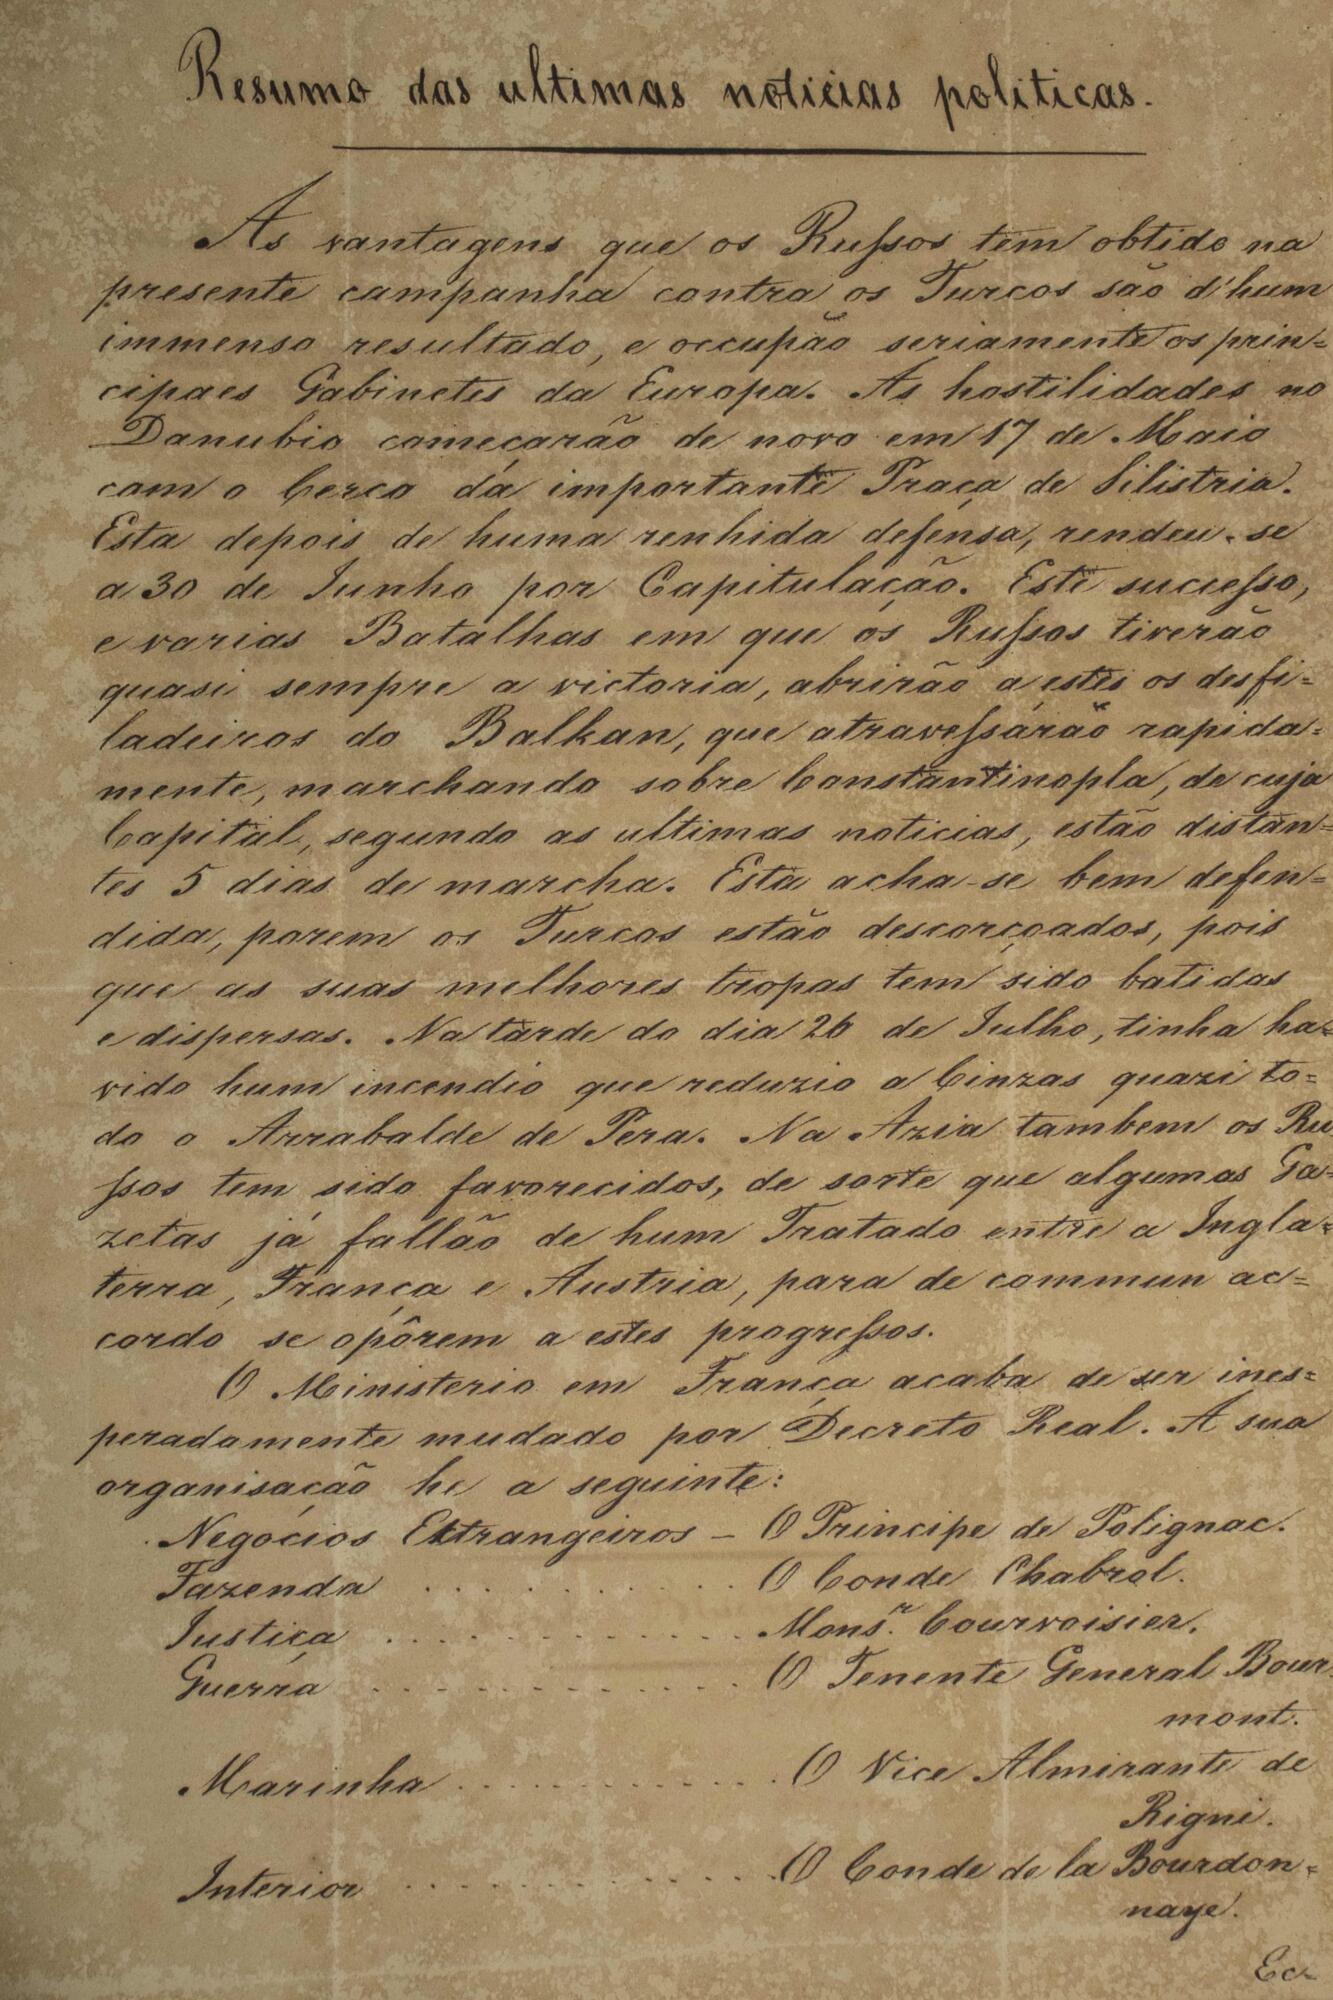 Resumo das ultimas noticias politicas.
As vantagens que os Russos tem obtido na
presente campanha contra os Turcos são d'hum
immenso resultado, e occupão seriamente os prin=
cipaes Gabinetes da Europa. As hostilidades no
Danubio começarão de novo em 17 de Maio
com o Cerco da importante Praça de Silistria.
Esta depois de huma renhida defensa, rendeu-se
a 30 de Junho por Capitulação. Este sucesso,
e varias Batalhas em que os Russos tiverão
quasi sempre a victoria, abrirão a estes os desfi=
ladeiros do Balkan, que atravessárão rapida=
mente, marchando sobre Constantinopla, de cuja
Capital, segundo as ultimas noticias, estão distan=
tes 5 dias de marcha. Esta acha-se bem defen=
dida, porem os Turcos estão descorçoados, pois
que as suas melhores tropas tem sido batidas
e dispersas. Na tarde do dia 26 de Julho, tinha ha=
vido hum incendio que reduzio a Cinzas quazi to=
do o Arrabalde de Pera. Na Azia tambem os Ru
ssos tem sido favorecidos, de sorte que algumas Ga=
zetas já fallão de hum Tratado entre a Ingla=
terra, França e Austria, para de commun ac=
cordo se opôrem a estes progressos.
O Ministerio em França acaba de ser ines=
peradamente mudado por Decreto Real. A sua
organisação he a seguinte:
Negocios Extrangeiros - O Principe de Polignac.
Fazenda . . . . . . . . . . . O Conde Chabrol.
Justiça . . . . . . . . . . . . Mons.r Courvoisier.
Guerra . . . . . . . . . . . . O Tenente General Bour
mont.
Marinha . . . . . . . . . . . . O Vice Almirante de
Rigni.
Interior . . . . . . . . . . . . O Conde de la Bourdon=
naye.
Ec=